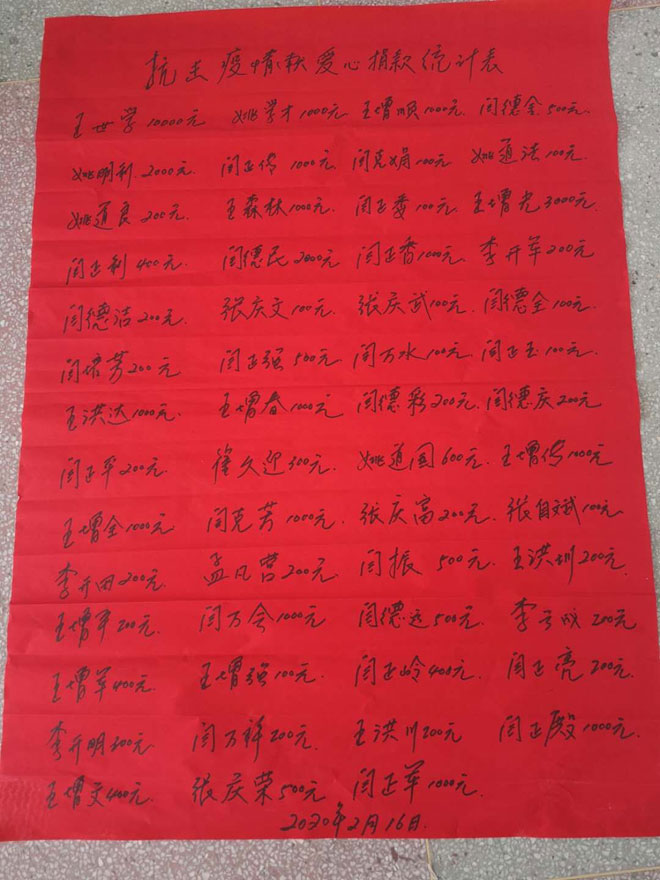 抗击疫情献爱心捐款统计表
王世学10000元 姚学才1000元 王增顺1000元 闫德金500元
姚明利2000元 闫正传1000元 闫克娟100元 姚道法100元
姚道良200元 王森林1000元 闫正委100元 王增光3000元
闫正利400元 闫德民2000元 闫正香1000元 李开军200元
闫德洁200元 张庆文100元 张庆武100元 闫德全100元
闫培芳200元 闫正强500元 闫万水100元 闫正玉100元
王洪达1000元 王增春1000元 闫德彩200元 闫德庆200元
闫正平200元 崔久迎300元 姚道国600元 王增传1000元
王增全1000元 闫克芳1000元 张庆富200元 张自斌100元
李开田200元 孟凡营200元 闫振500元 王洪圳200元
王增军200元 闫万会1000元 闫德远500元 李 200元
王增军400元 王增强100元 闫正岭400元 闫正亮200元
李开明200元 闫万祥200元 王洪川200元 闫正殿1000元
王增文400元 张庆荣500元 闫正军1000元
2020年2月16日